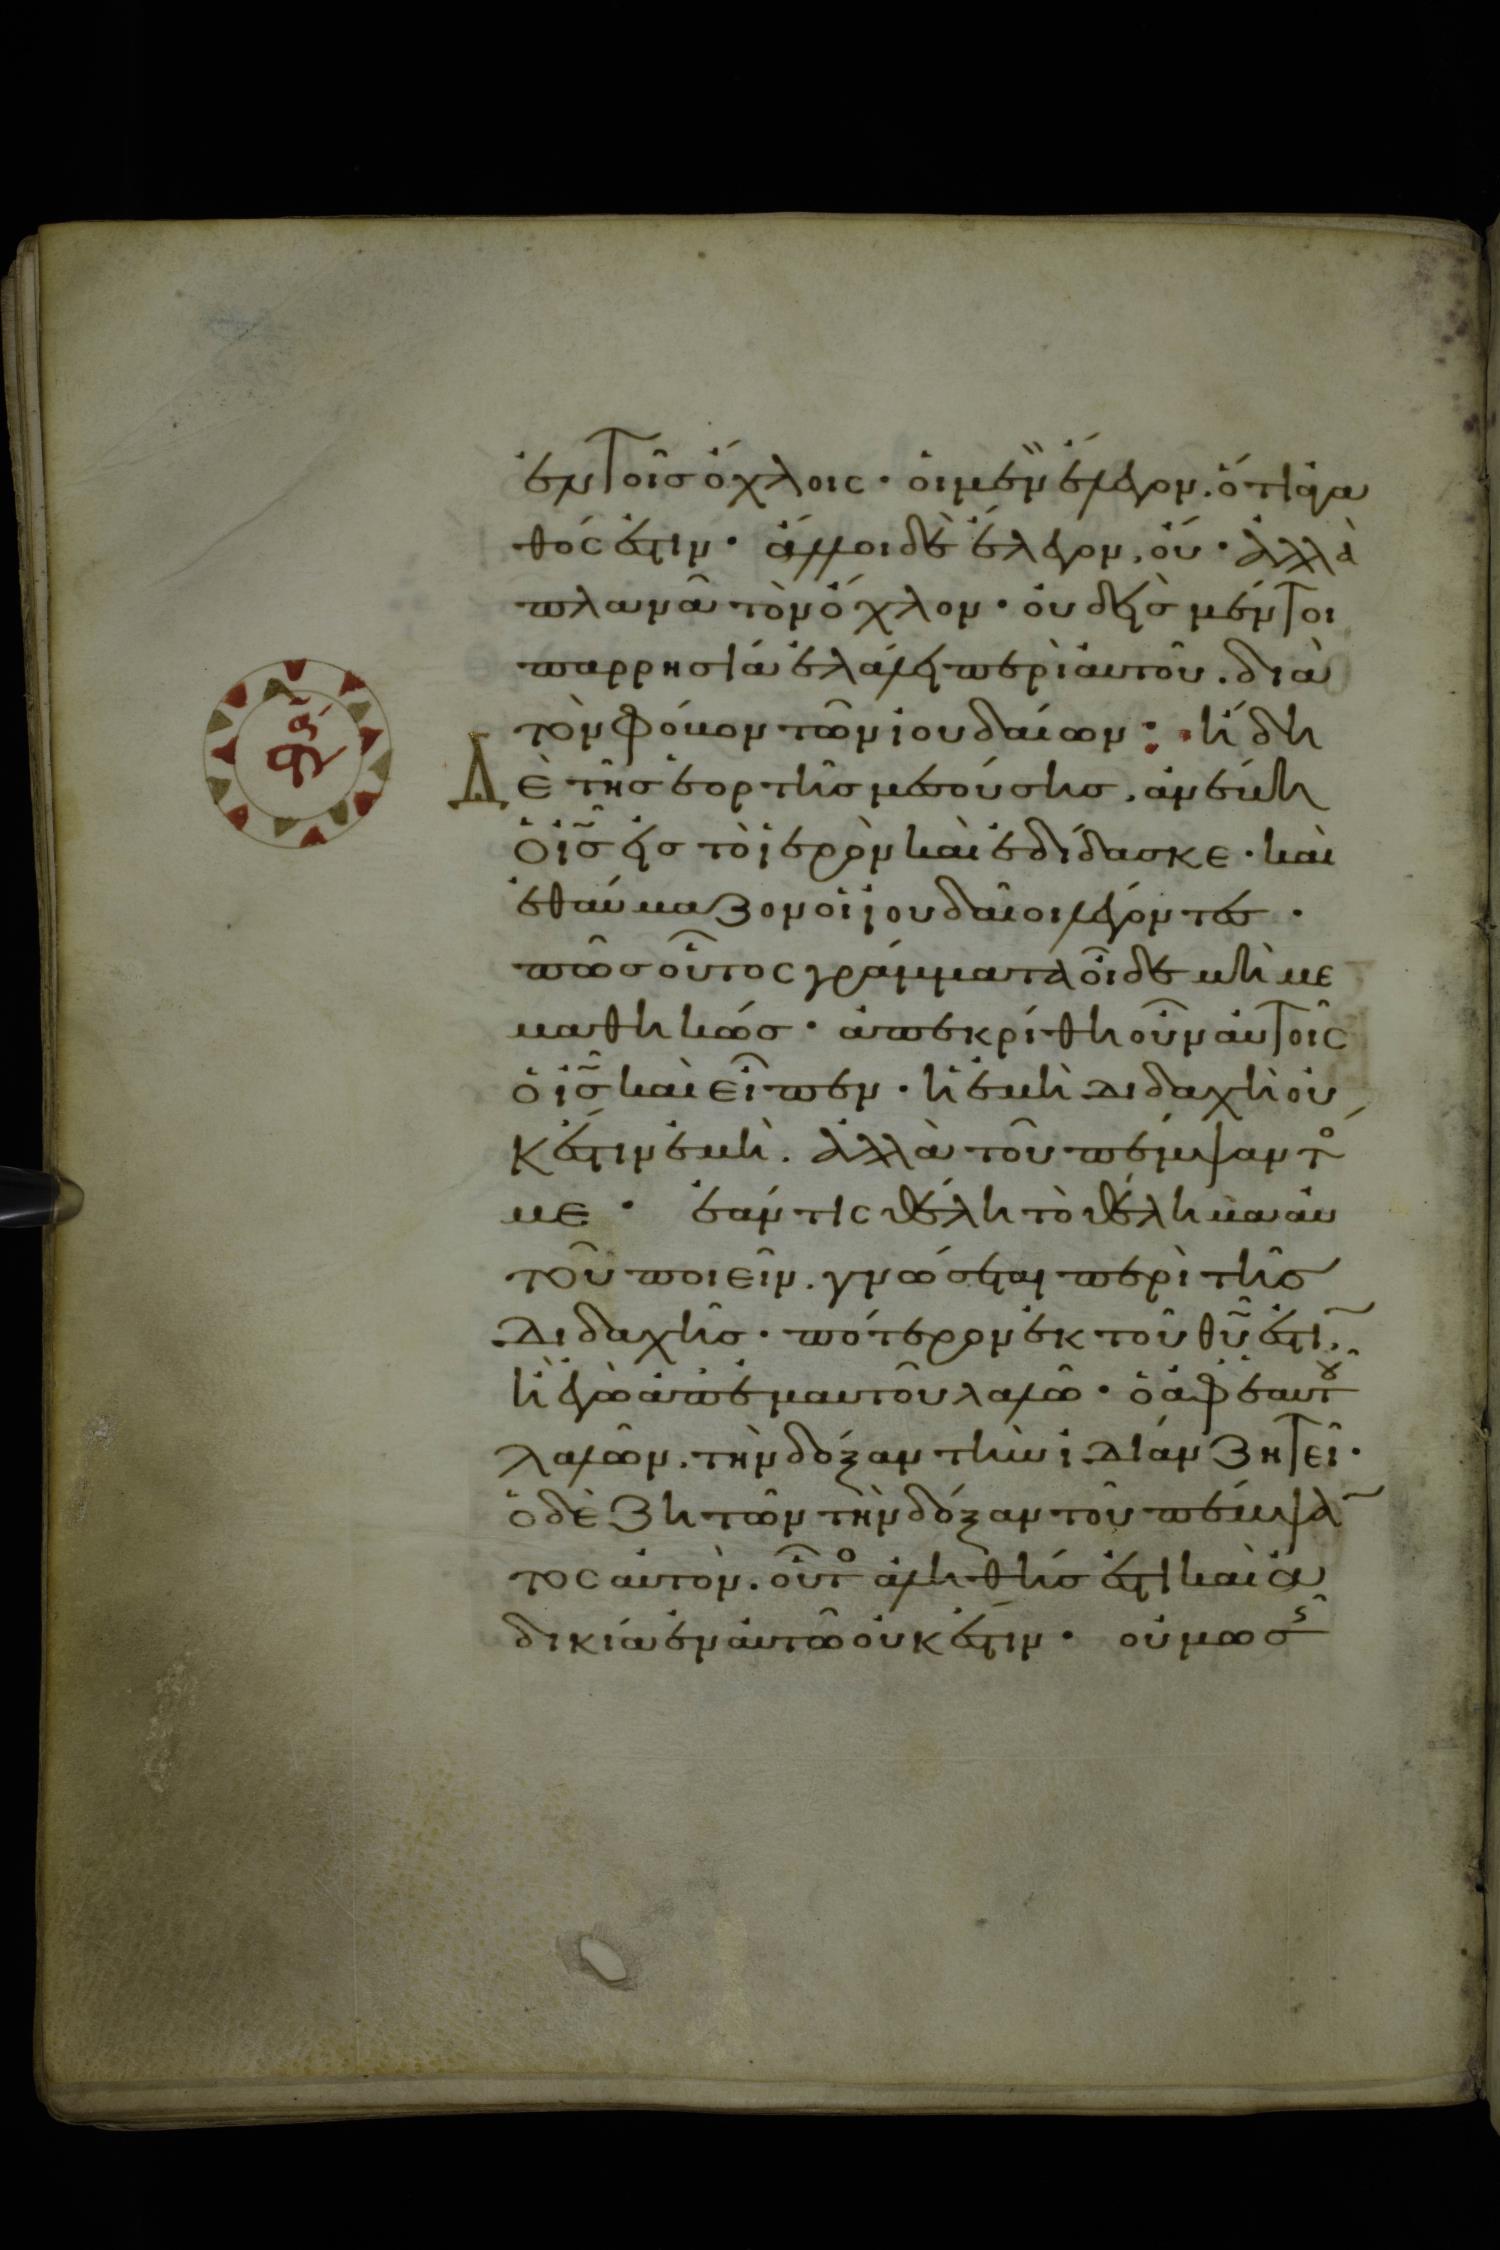 ἐν τοῖς ὄχλοις· οἱ μὲν ἔλεγον. ὅτι ἀγα
θός ἐστιν· ἄλλοι δὲ ἔλεγον, οὔ· ἀλλὰ
πλανᾶ τὸν ὄχλον· οὐδεὶς μέντοι
παρρησία ἐλάλει περὶ αὐτοῦ. διὰ
τὸν φόβον τῶν ἰουδαίων: ἤδη
Δὲ τῆς ἑορτῆς μεσούσης, ἀνέβη
ὁ ἰς̃ εἰς τὸ ἱερὸν καὶ ἐδίδασκε· καὶ
ἐθαύμαζον οἱ ἰουδαῖοι λέγοντες·
πῶς οὗτος γράμματα οἶδε μὴ με
μαθηκώς· ἀπεκρίθη οὖν αὐτοῖς
ὁ ἰς̃ καὶ εἶπεν· ἡ ἐμὴ διδαχὴ οὐ
κ ἔστιν ἐμὴ. ἀλλὰ τοῦ πέμψαντο
με· ἐάν τις θέλη τὸ θέλημα αὐ
τοῦ ποιεῖν. γνώσεται περὶ τῆς
διδαχῆς· πότερον ἐκ τοῦ θυ̃ ἐστι,
ἢ ἐγὼ ἀπ' ἐμαυτοῦ λαλῶ· ὁ ἀφ' ἑαυτοῦ
λαλῶν. τὴν δόξαν τὴν ἰδίαν ζητεῖ·
ὁ δὲ ζητῶν τὴν δόξαν τοῦ πέμψα̃
τος αὐτὸν. οὗτο ἀληθής ἐστι καὶ ἀ
δικία ἐν αὐτῶ οὐκ ἔστιν· οὐ μωσ